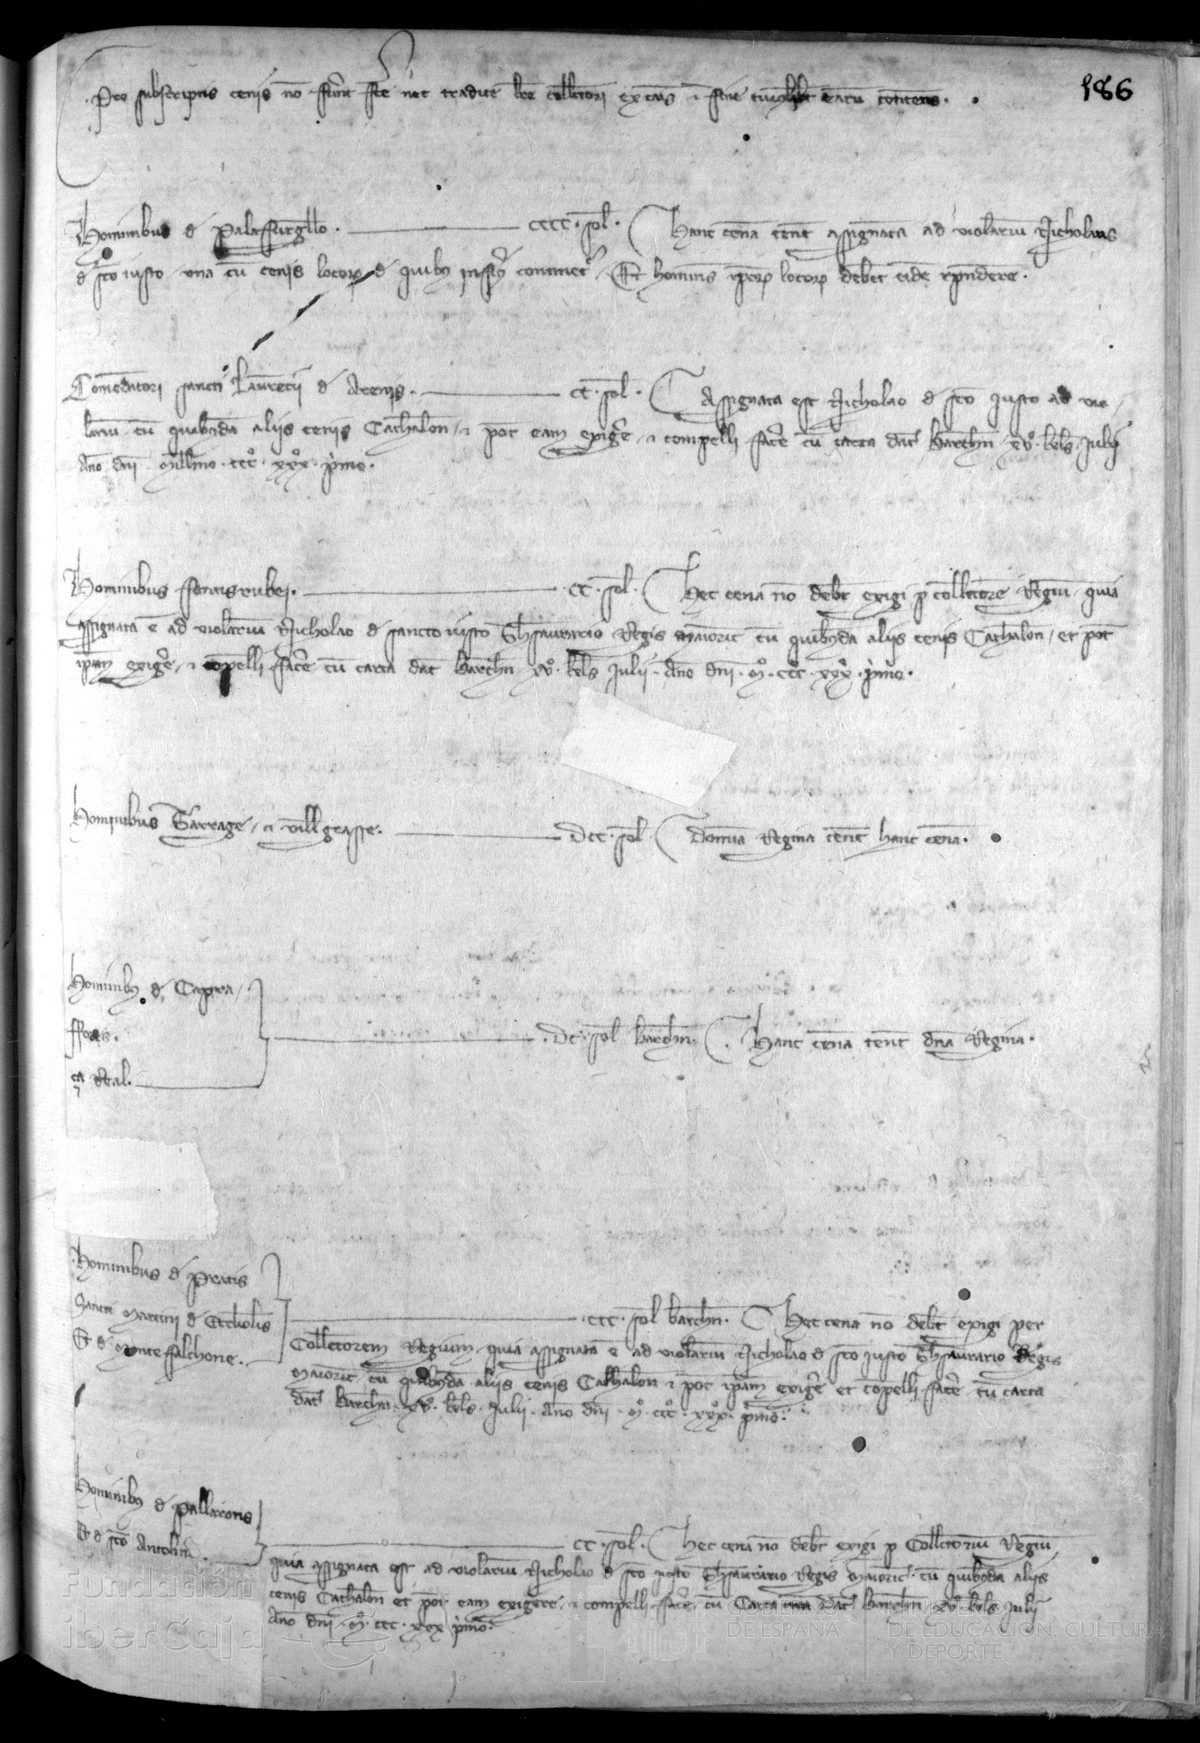 186
Pro subscriptis cenis nō fuer̄t fc̄e nec tradite lr̄e collectori ex causis
Hominibus d̄ Palafurgello. cccc. sol. Hanc cenā tenet assignata ad violariū Nicholaus
d̄ sc̄o iusto una cū cenis locorꝝ d̄ quibꝫ inferiꝰ continet̄. Et homines ip̄orꝝ locorꝝ debēt eidē rn̄dere.
Comēdatori sancti Laurēcii d̄ Arenis. cc. sol. Assignata est Nicholao d̄ sc̄o Justo ad vio
lariū cū quibusdā aliis cenis Cathalon̄ ⁊ pōt eam exigˀe ⁊ compelli facˀe cū carta dat̄ Barchn̄ xvº. kl̄s Julij
Año dn̄i millīmo. cccº. xxxº. pˀmo.
Hominibus fontisrubei. cc. sol. Hec cena nō debet exigi p̱ collectorē Regiū quia
assignata ē ad violariū Nicholao d̄ sancto iusto Thesaurario Regis Maioric̄ cū quibusdā aliis cenis Cathalon̄ et pōt
ip̄am exigˀe ⁊ cōpelli facˀe cū carta dat̄ Barchn̄ xvº. kl̄s Julii. Año dn̄i. mº. cccº. xxxº. pˀmo.
Hominibus Tarrage ⁊ villegrasse. dcc. sol. Domina Regina tenet hanc cenā.
Hominibꝫ d̄ Capra
ffores.
ça Real. dc. sol. barchn̄. Hanc cenā tenet dn̄a Regina.
Hominibus d̄ Pratis
Sancti Martini d̄
Et d̄ Monte falchone. ccc. sol. barchn̄. Hec cena nō debet exigi per
Collectorem Regium quia assignata ē ad violariū Nicholao d̄ sc̄o Justo Thesaurario Regis
Maioric̄ cū quibusdā aliis cenis Cathalon̄ ⁊ pōt ip̄am exigˀe et cōpelli facˀe cū carta
dat̄ Barchn̄ xvº. kl̄s. Julii. Año dn̄i. mº. cccº. xxxº. pˀmo.
Hominibꝫ d̄ Pallarons
Et d̄ sc̄o Antolino. cc. sol. Hec cena nō debet exigi p̱ Collectoriū Regiū
quia assignata est ad violariū Nicholao d̄ sc̄o iusto Thesaurario Regis Maioric̄ cū quibusdā aliis
cenis Cathalon̄ et pōt eam exigere ⁊ compelli facˀe cū Carta dat̄ Barchn̄ xvº. kl̄s Julij
Año dn̄i. mº. ccc. xxx pˀmo.
Fundación
iberCaja
DE ESPAÑA
DE EDUCACIÓN, CULTURA
Y DEPORTE